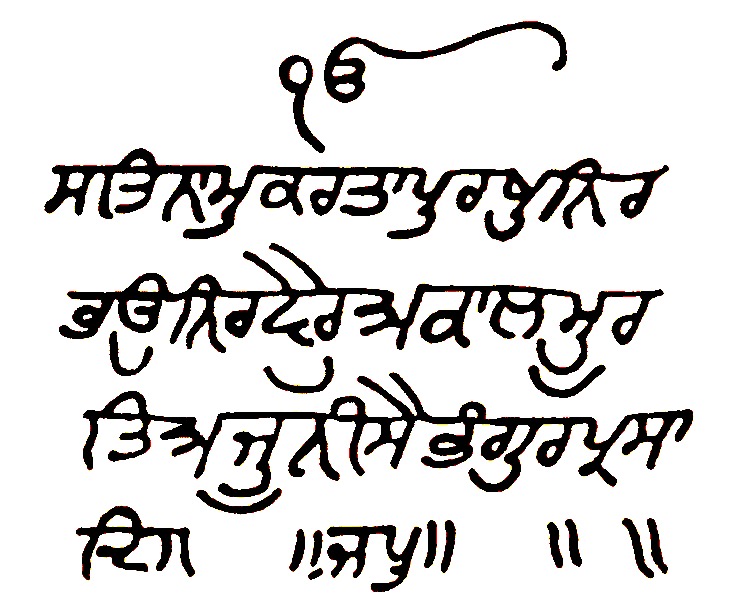 ੴ
ਸਤਿਨਾਮੁਕਰਤਾਪੁਰਖੁਨਿਰ
ਭਉਨਿਰਵੈਰੁਅਕਾਲਮੂਰ
ਤਿਅਜੂਨੀਸੈਭੰਗੁਰਪ੍ਰਸਾ
ਦਿ॥ ॥ਜਪੁ॥ ॥ ॥